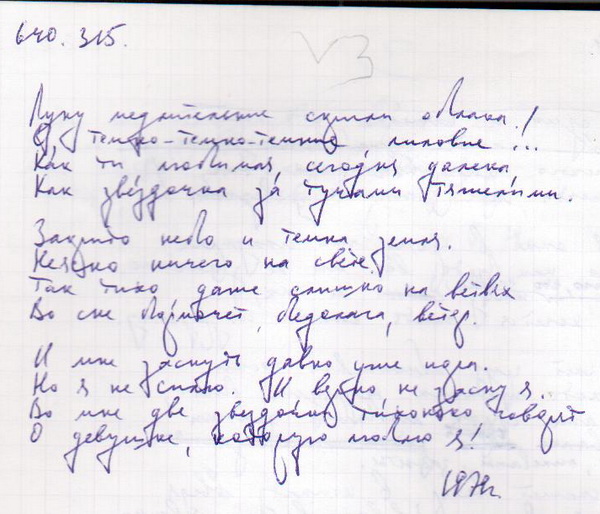 640. 315.
V3
Луну медлительные скрыли облака!
О, темно-темно-темно лиловые...
Как ты любимая, сегодня далека,
Как звёздочка за тучами тяжелыми.
Закрыто небо и темна земля.
Неясно ничего на свете.
Так тихо даже слышно на ветвях
Во сне бормочет, бедолага, ветер.
И мне заснуть давно уже пора.
Но я не сплю. И верно не засну я.
Во мне две звездочки тихонько говорят
О девушке, которую люблю я!
197 г.